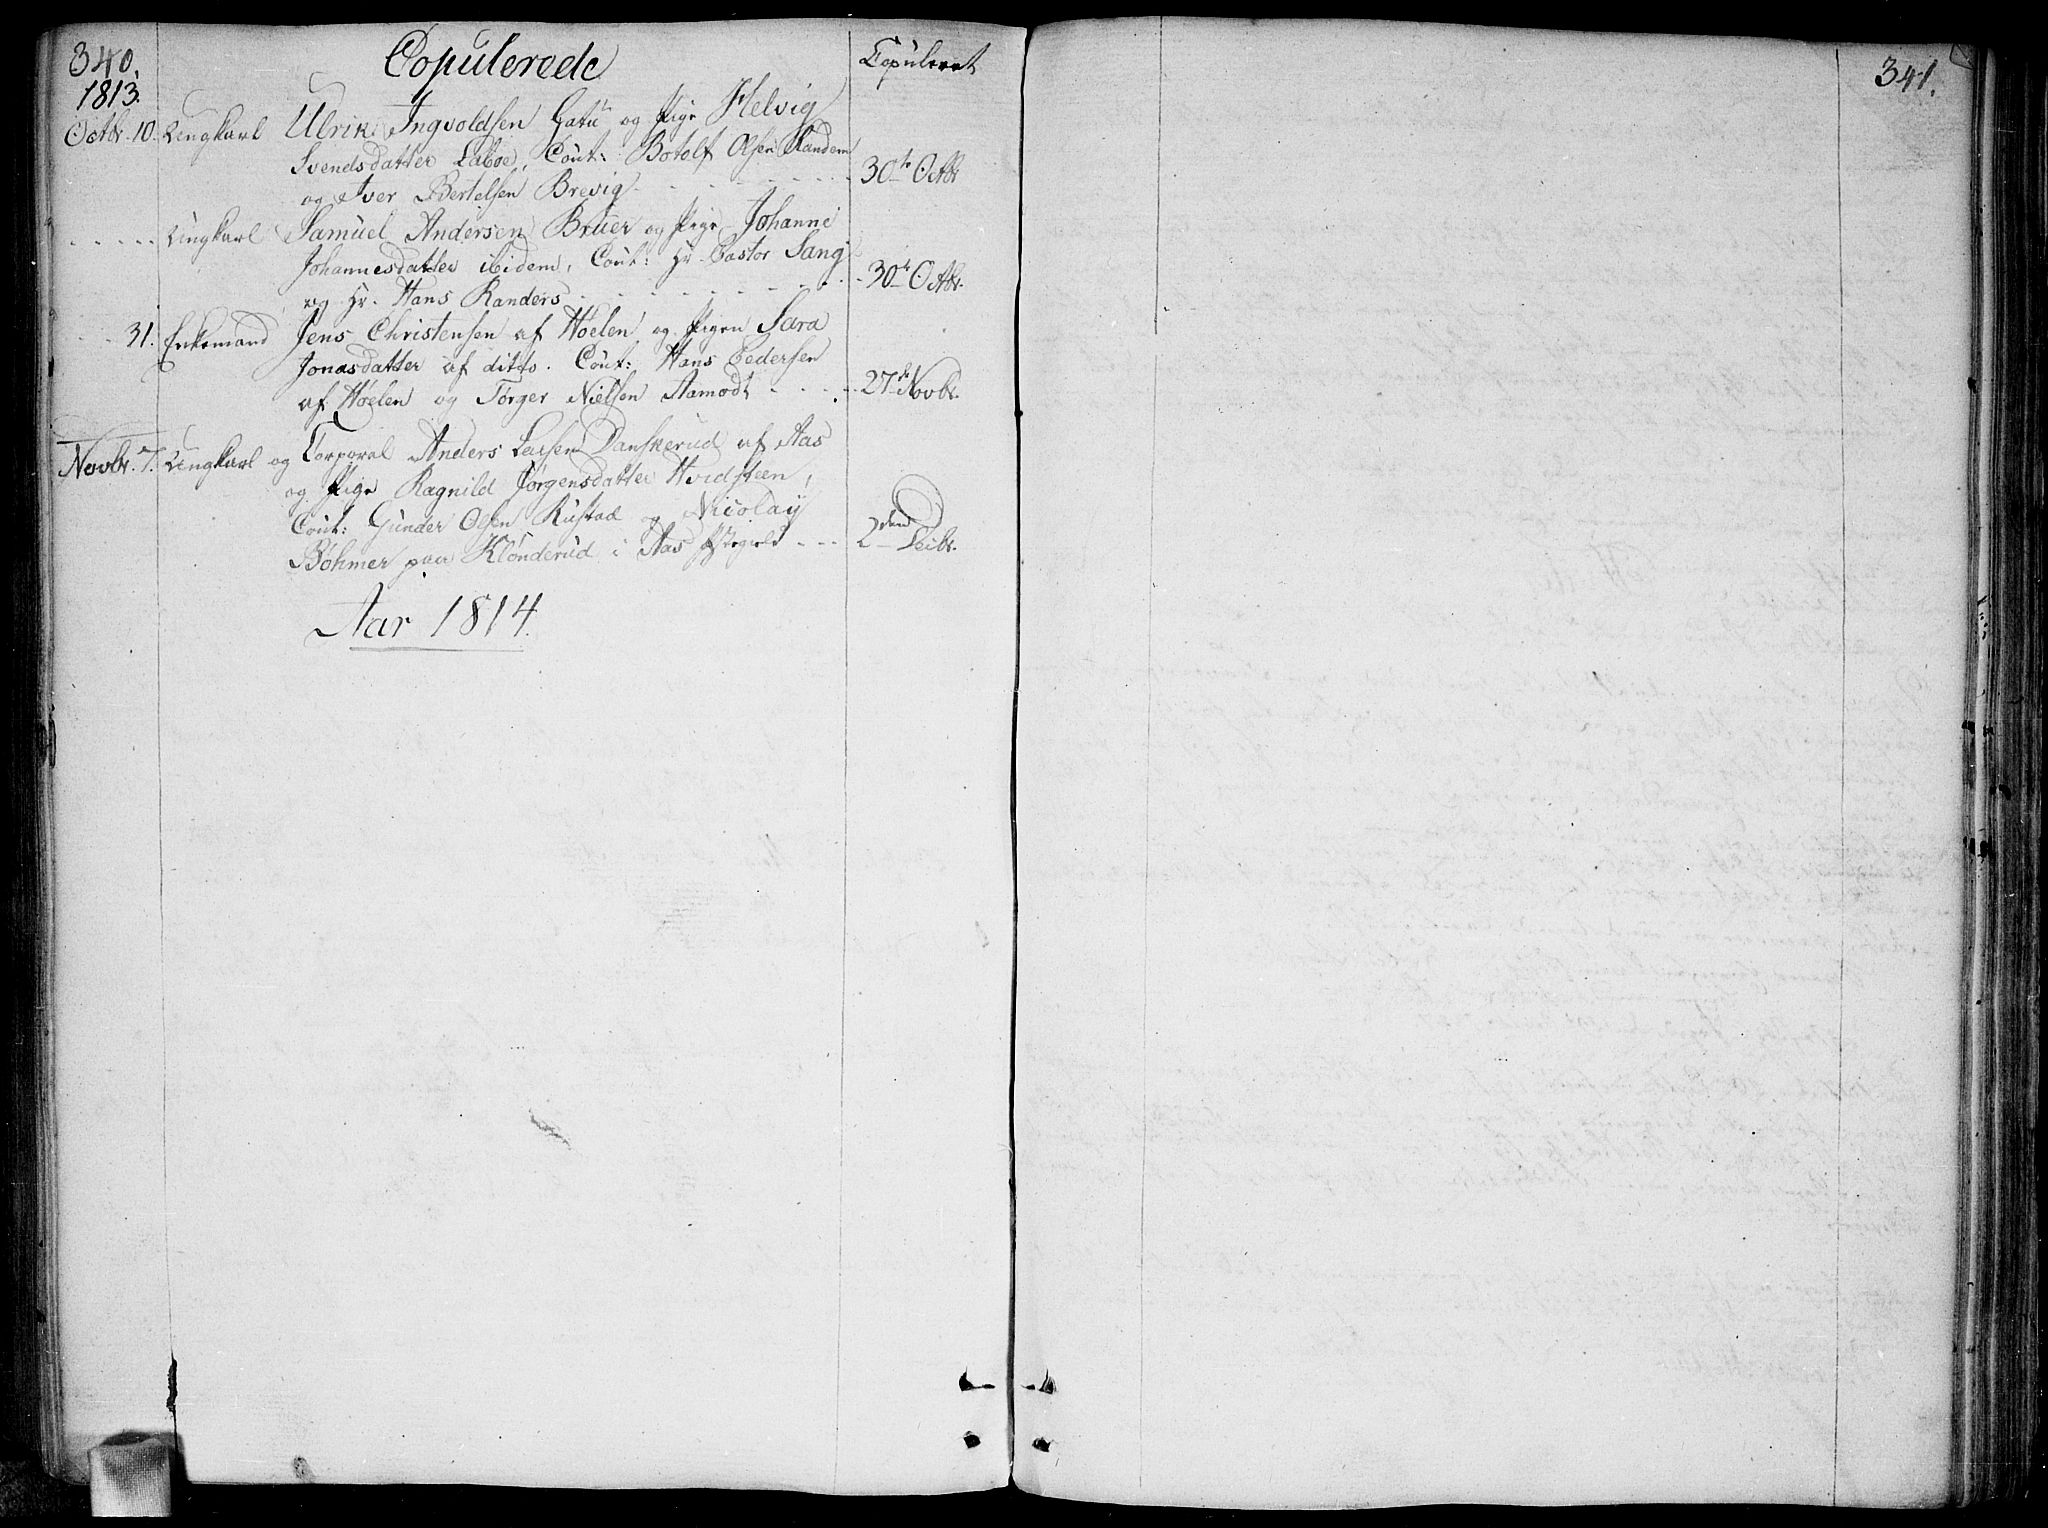 340. Copulerede Copuleret
1813.
Octbr. 10. Ungkarl Ulrik Ingvoldsen Gatu og Pige Helvig
Svendsdatter Laboe, Cout: Botolf Olsen Randem
og Iver Bertelsen Brevig - - - 30te Octbr
- - - - - Ungkarl Samuel Andersen Bruer og Pige Johanne
Johannesdatter ibidem, Cout: Hr. Pastor Lang
og Hr. Hans Randers - - - 30te Octbr.
- - - 31. Enkemand Jens Christensen af Høelen og Pigen Sara
Jonasdatter af ditto. Cout: Hans Pedersen
af Høelen og Törger Nielsen Aamodt - - - - 27de Novbr.
Novbr. 7. Ungkarl og Corporal Anders Danskerud af Aas
og Pige Ragnild Jørgensdatter Hvidsteen,
Cout: Gunder Olsen Rustad og Nicolay
Bøhmer paa Klønderud i Aas - - - 2den Decbr.
Aar 1814.
341.